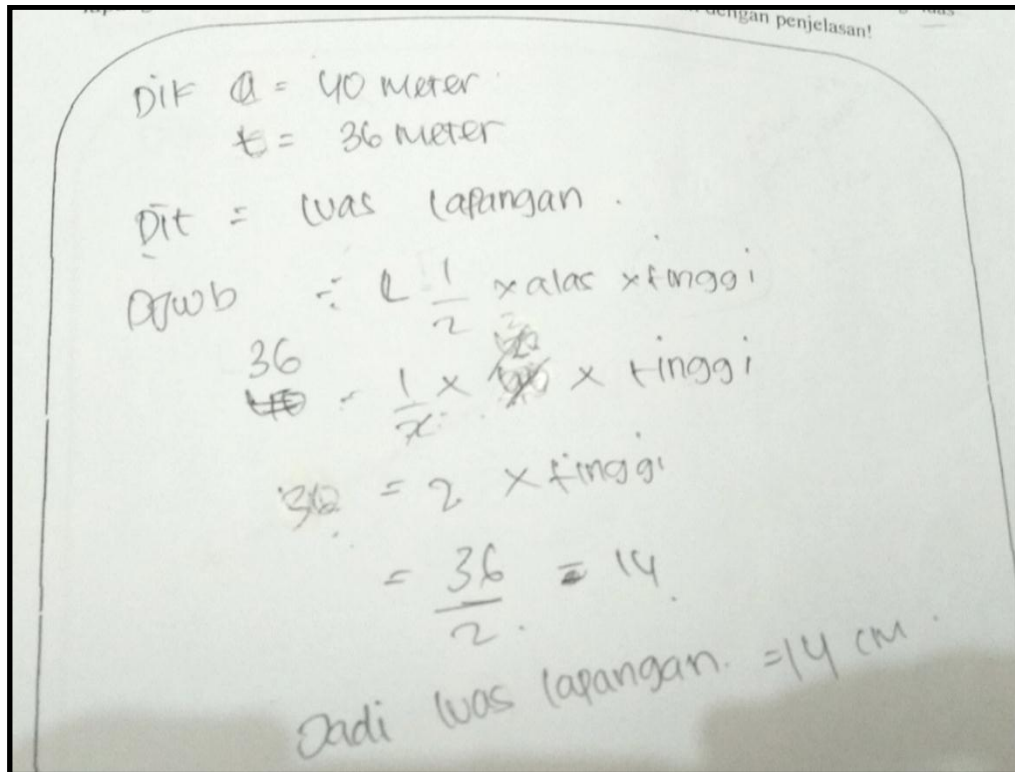 dengan penjelasan!
Dik a = 40 meter
t = 36 meter
Dit = luas lapangan.
DJwb = L 1/2 x alas x tinggi
36 = 1/2 x x tinggi
36 = 2 x tinggi
= 36/2 = 14
Jadi luas lapangan. = 14 cm.